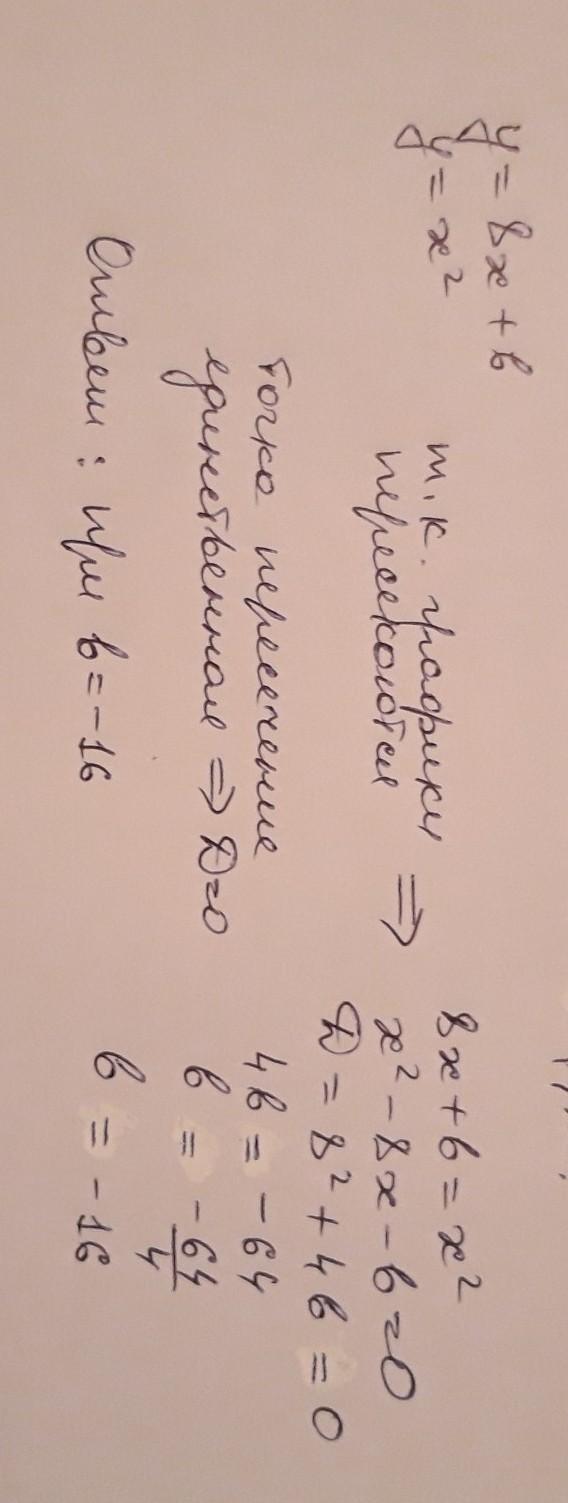 y = 8x + b
y = x²
т.к. графики
пересекаются ⇒
8x + b = x²
x² - 8x - b = 0
D = 8² + 4b = 0
точка пересечение
единственная ⇒ D=0
4b = -64
b = -64/4
b = -16
Ответ: при b = -16